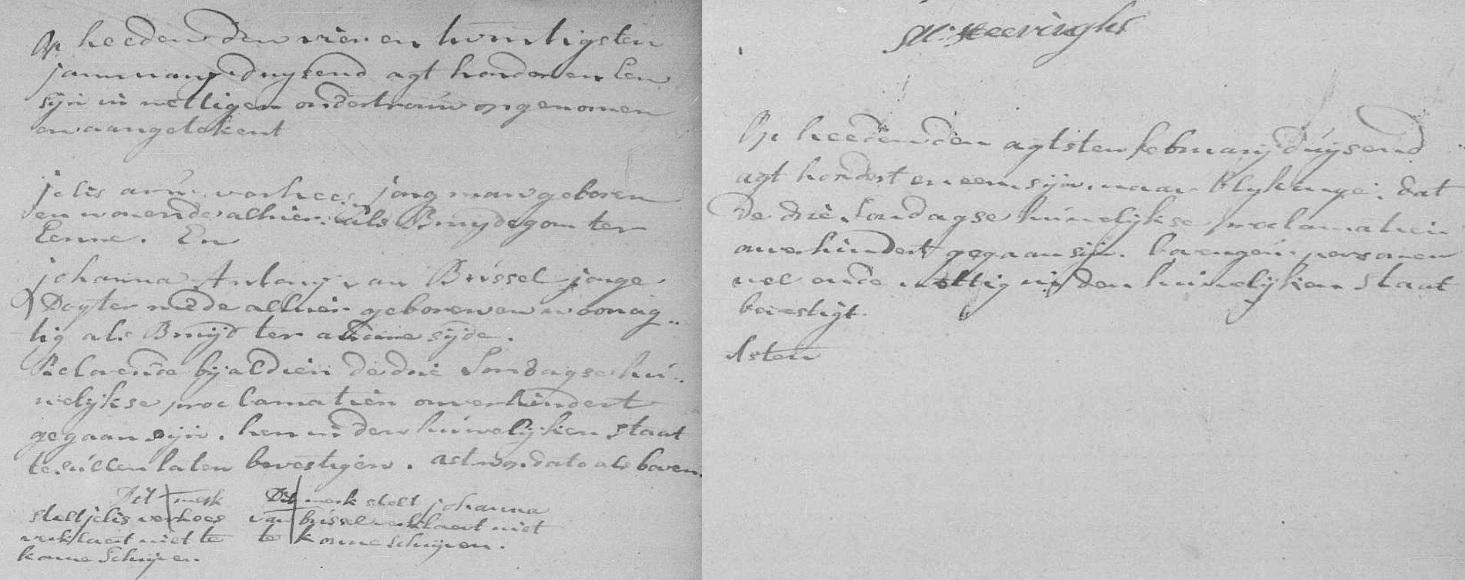 Op heeden den vier en twintigsten
januuary duysend agt hondert en Een
syn in wettigen ondertrouw opgenomen
en aangetekent
jelis arn. verhees jong man geboren
en wonende alhier als Bruydegom ter
Eenne. En
johanna Antony van Brussel jonge
Dogter mede alhier geboren en woonag-
tig als Bruyd ter andere syde.
Belovende byaldien de drie Sondagse hu-
welykse proclamatien onverhindert
gegaan syn. hen in den huwelyken staat
te sullen laten bevestigen. actum dato als boven
Dit merk
stelt jelis verhees
verklaert niet te
konne Schryven
Dit merk stelt johanna
van brussel verklaert niet
te konne Schryven.
Op heeden den agtsten february duysend
agt hondert en een syn, naar Blykinge, dat
de drie Sondagse huwelykse proclamatien
onverhindert gegaan syn. bovengem. personen
wel ende wettig in den huwelyken Staat
bevestigt.
Asten